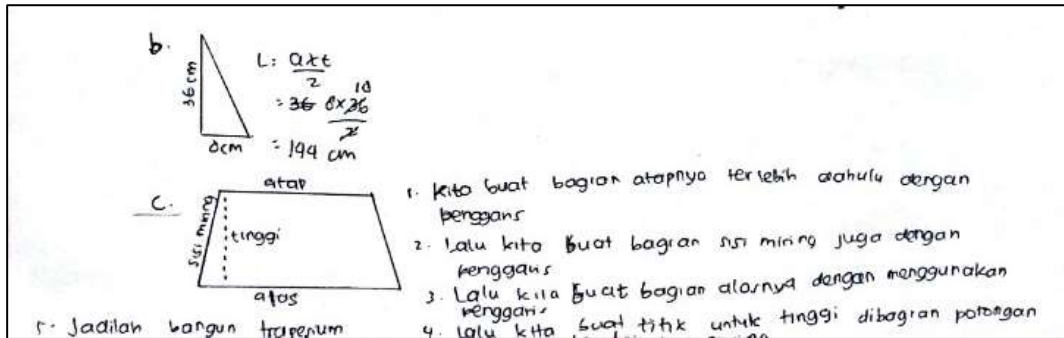 b.
36 cm
8cm
L: axt
2
18
= 36 8x36
2
= 144 cm
c.
atap
sisi miring
tinggi
alas
1. kita buat bagian atapnya terlebih dahulu dengan
penggaris
2. Lalu kita buat bagian sisi miring juga dengan
penggaris
3. Lalu kita buat bagian alasnya dengan menggunakan
penggaris
4. Lalu kita buat titik untuk tinggi dibagian potongan
5. Jadilah bangun trapesium